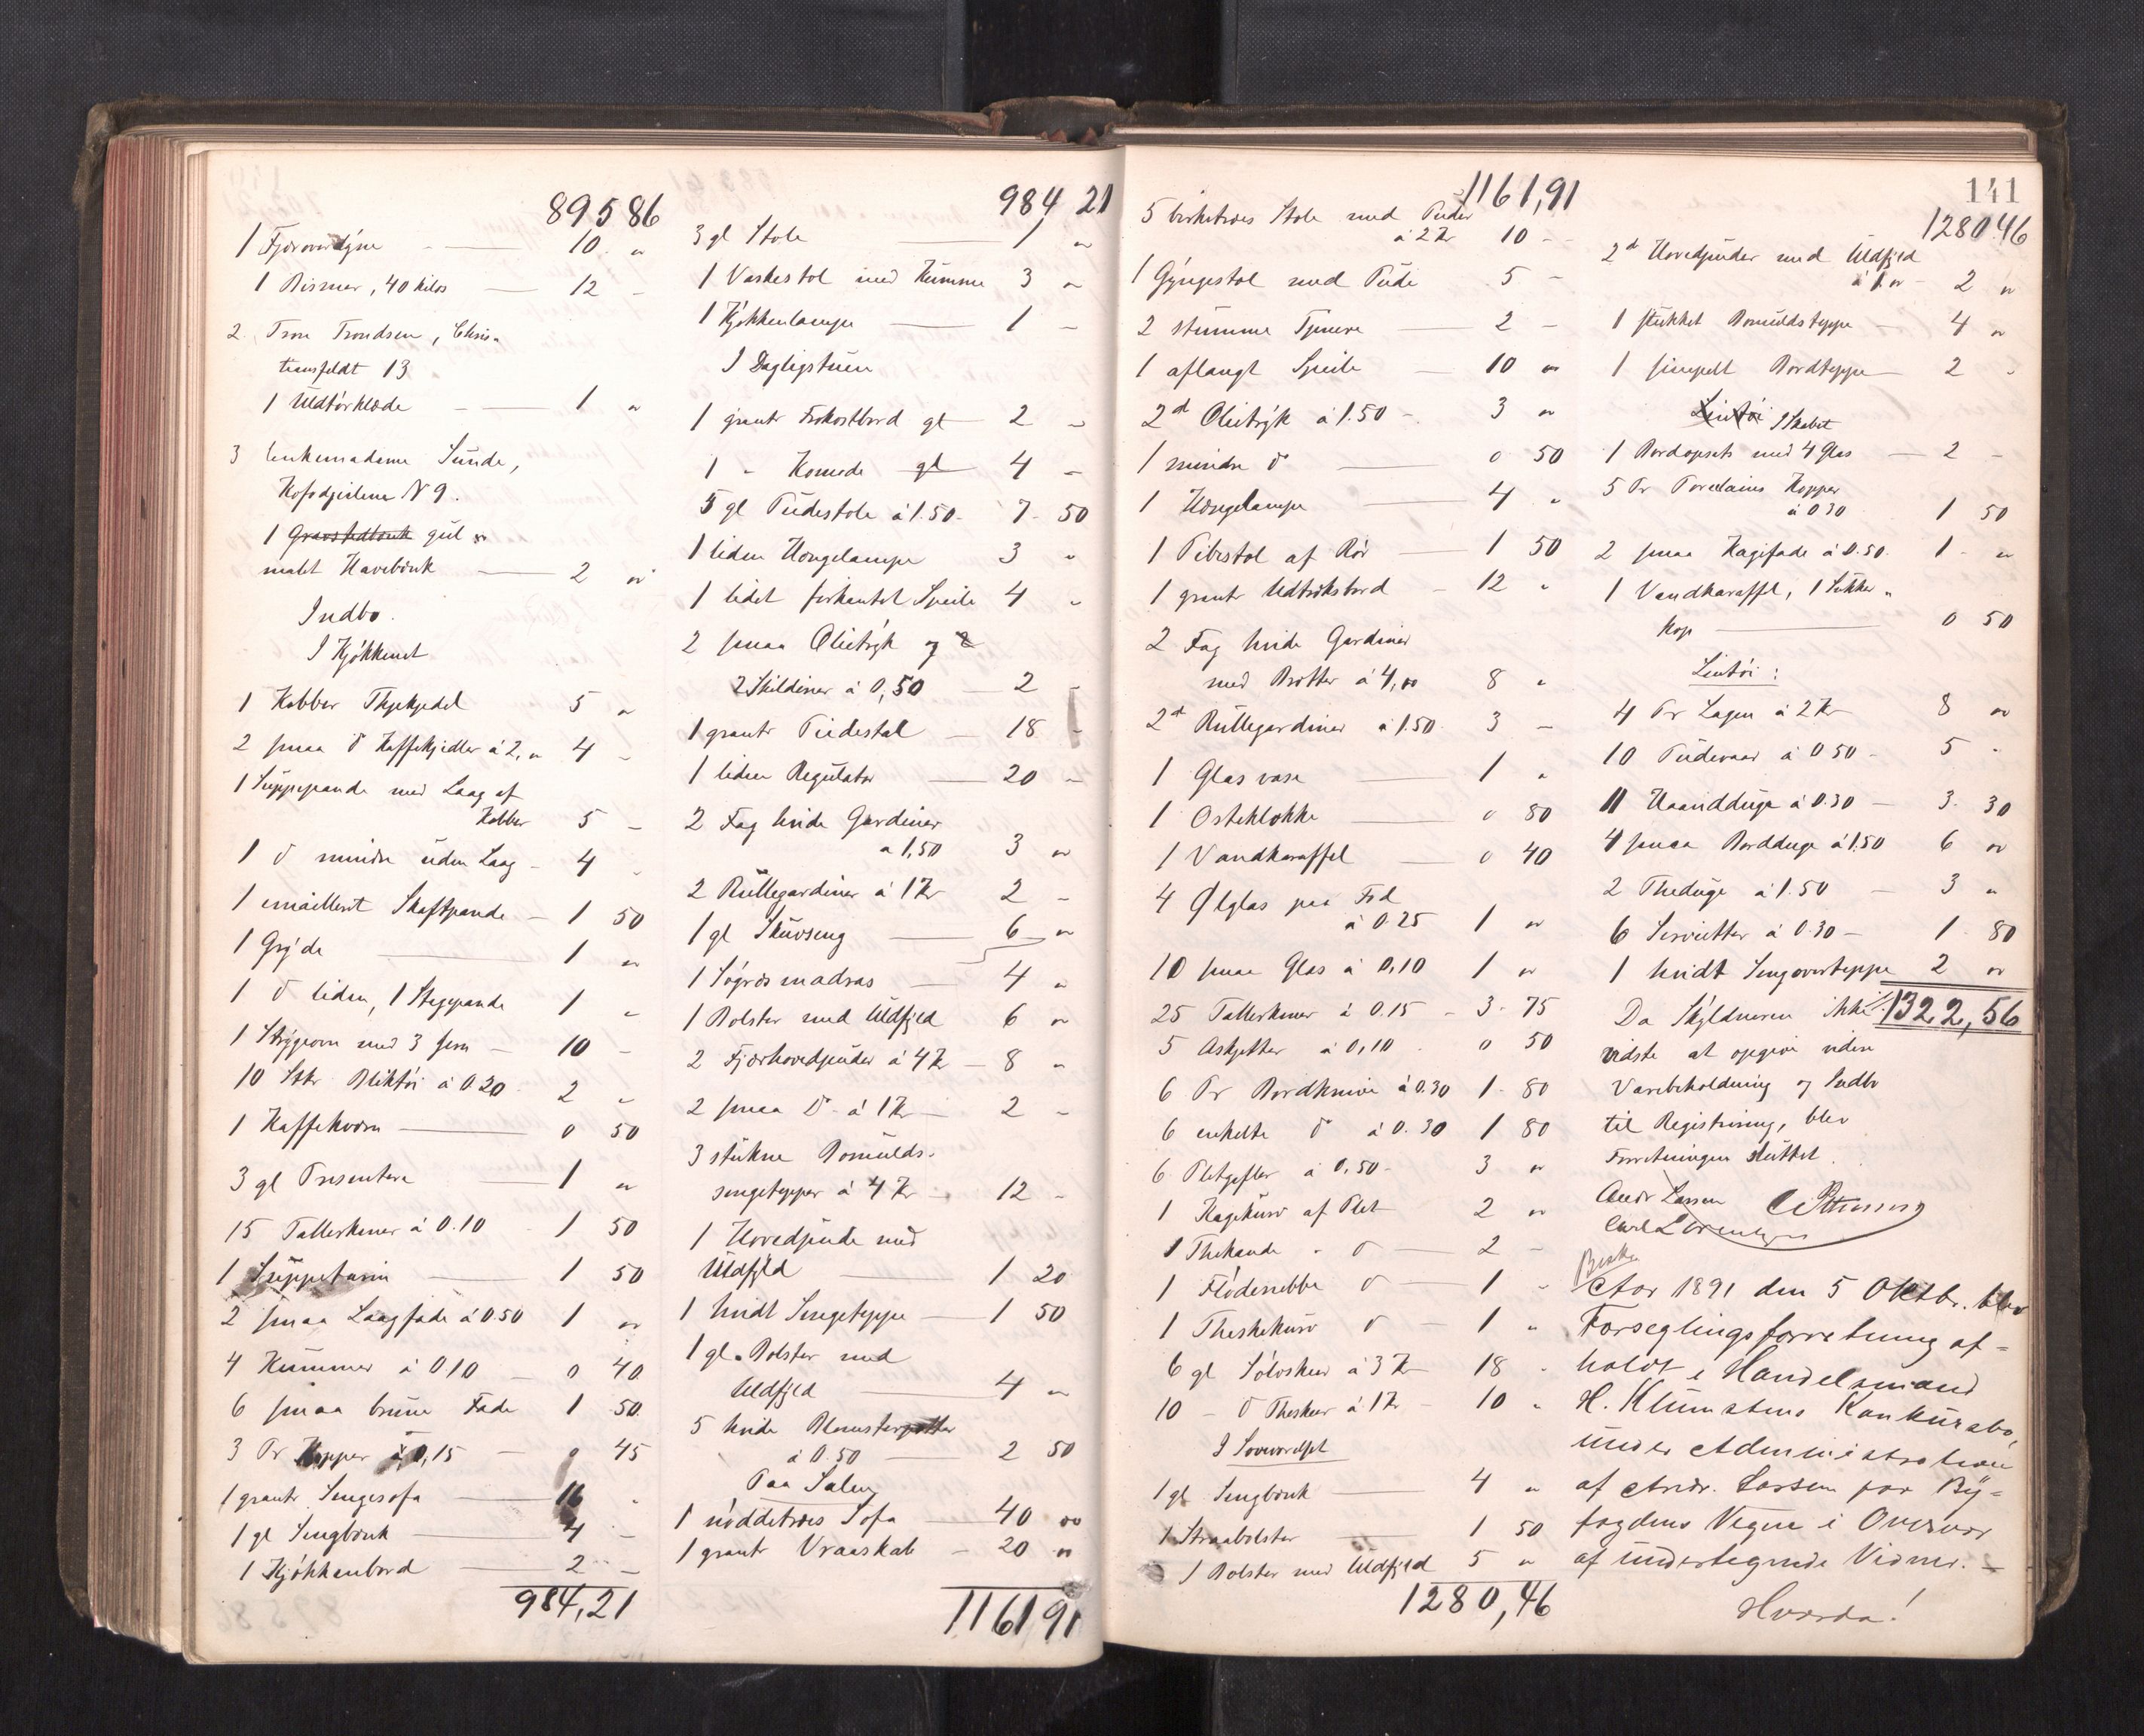 895 86
1 Fjæroverdyne — 10 "
1 Bismer, 40 kilos — 12 -
2. Tron Trondsen, Chris-
tiansfeldt 13
1 Uldtørklæde — 1 "
3 Enkemadame Sunde,
N 9.
1 gul
malet Havebænk — 2 "
Indbo.
I Kjøkkenet
1 Kobber Thekjedel 5 "
2 smaa do Kaffekjedler á 2, " 4 -
1 Suppepande med Laag af
Kobber 5 -
1 do mindre uden Laag - 4 -
1 emailleret Skaftpande - 1 50
1 Gryde — 1 "
1 do liden, 1 Stegepande 1 "
1 Strygeovn med 3 Jern - 10 -
10 Stkr Bliktøi á 0.20. 2 "
1 Kaffekværn — 0 50
3 gl Presentere — 1 "
15 Tallerkener á 0.10 1 50
1 Suppeterin — 1 50
2 smaa Laagfade á 0.50 1 "
4 Kummer á 0.10 - 0 40
6 smaa brune Fade 1 50
3 Pr Kopper á 0,15 - 0 45
1 grantr. Sengesofa — 16 -
1 gl Sengbænk — 4 -
1 Kjøkkenbord — 2 -
984,21
984, 21
3 gl Stole 1 "
1 Vaskestol med Kumme 3 "
1 Kjøkkenlampe — 1 -
I Dagligstuen
1 grantr Frokostbord gl — 2 -
1 - Komode gl 4 -
5 gl Pudestole á 1.50. 7. 50
1 liden Hængelampe 3 "
1 lidet firkantet Speile 4 -
2 smaa Olietryk og
2 Skilderier á 0,50 — 2 -
1 grantr Piedestal — 18 -
1 liden Regulator — 20 -
2 Fag hvide Gardiner
á 1,50 3 "
2 Rullegardiner á 1 Kr 2 -
1 gl Skuvseng — 6 "
1 Søgræsmadras — 4 "
1 Bolster med Uldfyld 6 "
2 Fjærhovedpuder á 4 Kr - 8 "
2 smaa Do á 1 Kr - 2 -
3 stukne Bomulds-
sengetepper á 4 Kr - 12 -
1 Hovedpude med
Uldfyld — 1 20
1 hvidt Sengeteppe — 1 50
1 gl. Bolster med
Uldfyld — 4 "
5 hvide Blomsterpotter
á 0.50 — 2 50
Paa Salen
1 nøddetræes Sofa — 40 "
1 grantr Vraaskab - 20 "
1161 91
1161,91
5 birketræes Stole med Puder
á 2 Kr 10 -
1 Gyngestol med Pude 5 -
2 stumme Tjenere — 2 -
1 aflangt Speile — 10 "
2 do Olietryk á 1.50 - 3 "
1 mindre do — 0 50
1 Hængelampe — 4 "
1 Pibestol af Rør — 1 50
1 grantr Udtræksbord - 12 "
2 Fag hvide Gardiner
med Brætter á 4, " 8 "
2 do Rullegardiner á 1.50. 3 -
1 Glas vase — 1 "
1 Osteklokke — 0 80
1 Vandkaraffel — 0 40
4 Ølglas paa Fod
á 0.25 1 "
10 smaa Glas á 0,10 1 "
25 Tallerkener á 0.15 - 3. 75
5 Asjetter á 0,10 . 0 50
6 Pr Bordknive á 0.30 1. 80
6 enkelte do á 0.30 1 80
6 Pletgafler á 0,50- 3 "
1 Kagekurv af Plet 2 "
1 Thekande - do — 2 -
1 Flødenebbe do — 1 -
1 Theskekurv do — 1 "
6 gl Sølvskeer á 3 Kr 18 -
10 - do Theskeer á 1 Kr - 10 "
I Soveværelset
1 gl Sengbænk — 4 "
1 Straabolster — 1 50
1 Bolster med Uldfyld 5 "
1280,46
141
1280 46
2 do Hovedpuder med Uldfyld
á 1 " - 2 "
1 stukket Bomuldsteppe — 4 "
1 simpelt Bordteppe — 2 -
Lintøi I Skabet
1 Bordopsats med 4 Glas - 2 -
5 Pr Porcelains Kopper
á 0 30 1 50
2 smaa Kagefade á 0.50. 1. "
1 Vandkaraffel, 1 Sukker "
kop — 0 50
Lintøi :
4 Pr Lagen á 2 Kr 8 "
10 Pudevaar á 0 50 - 5 -
11 Haandduge á 0.30 - 3. 30
4 smaa Bordduge á 1.50 6 "
2 Theduge á 1.50 - 3 "
6 Servietter á 0.30 - 1. 80
1 hvidt Sengoverteppe 2 "
Da Skyldneren ikke 1322,56
vidste at opgive videre
Varebeholdning og Indbo
til Registrering, blev
Forretningen sluttet.
Andr Lassen
Carl Lorentzen
Aar 1891 den 5 Oktbr. blev
Forseglingsforretning af-
holdt i Handelsmand
H. Klumstens Konkursbo,
under Administration
af Andr. Lassen paa By-
fogdens Vegne i Overvær
af undertegnede Vidner. -
Hvorda!